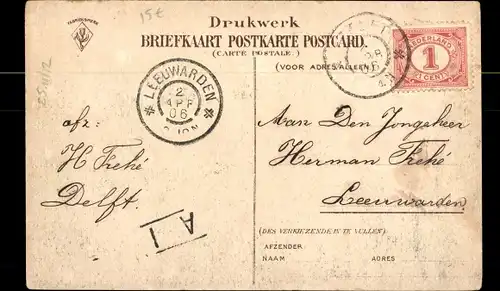 FABRIEKSMERK
15€
Drukwerk
BRIEFKAART POSTKARTE POSTCARD.
(CARTE POSTALE.)
(VOOR ADRES ALLEEN.)
NEDERLAND
1
CENT
LEEUWARDEN
2
APR
06
afz:
H Frehé
Delft.
Aan Den Jongeheer
Herman Frehé
Leeuwarden
A
1
(DES VERKIEZENDE IN TE VULLEN)
AFZENDER
NAAM
ADRES